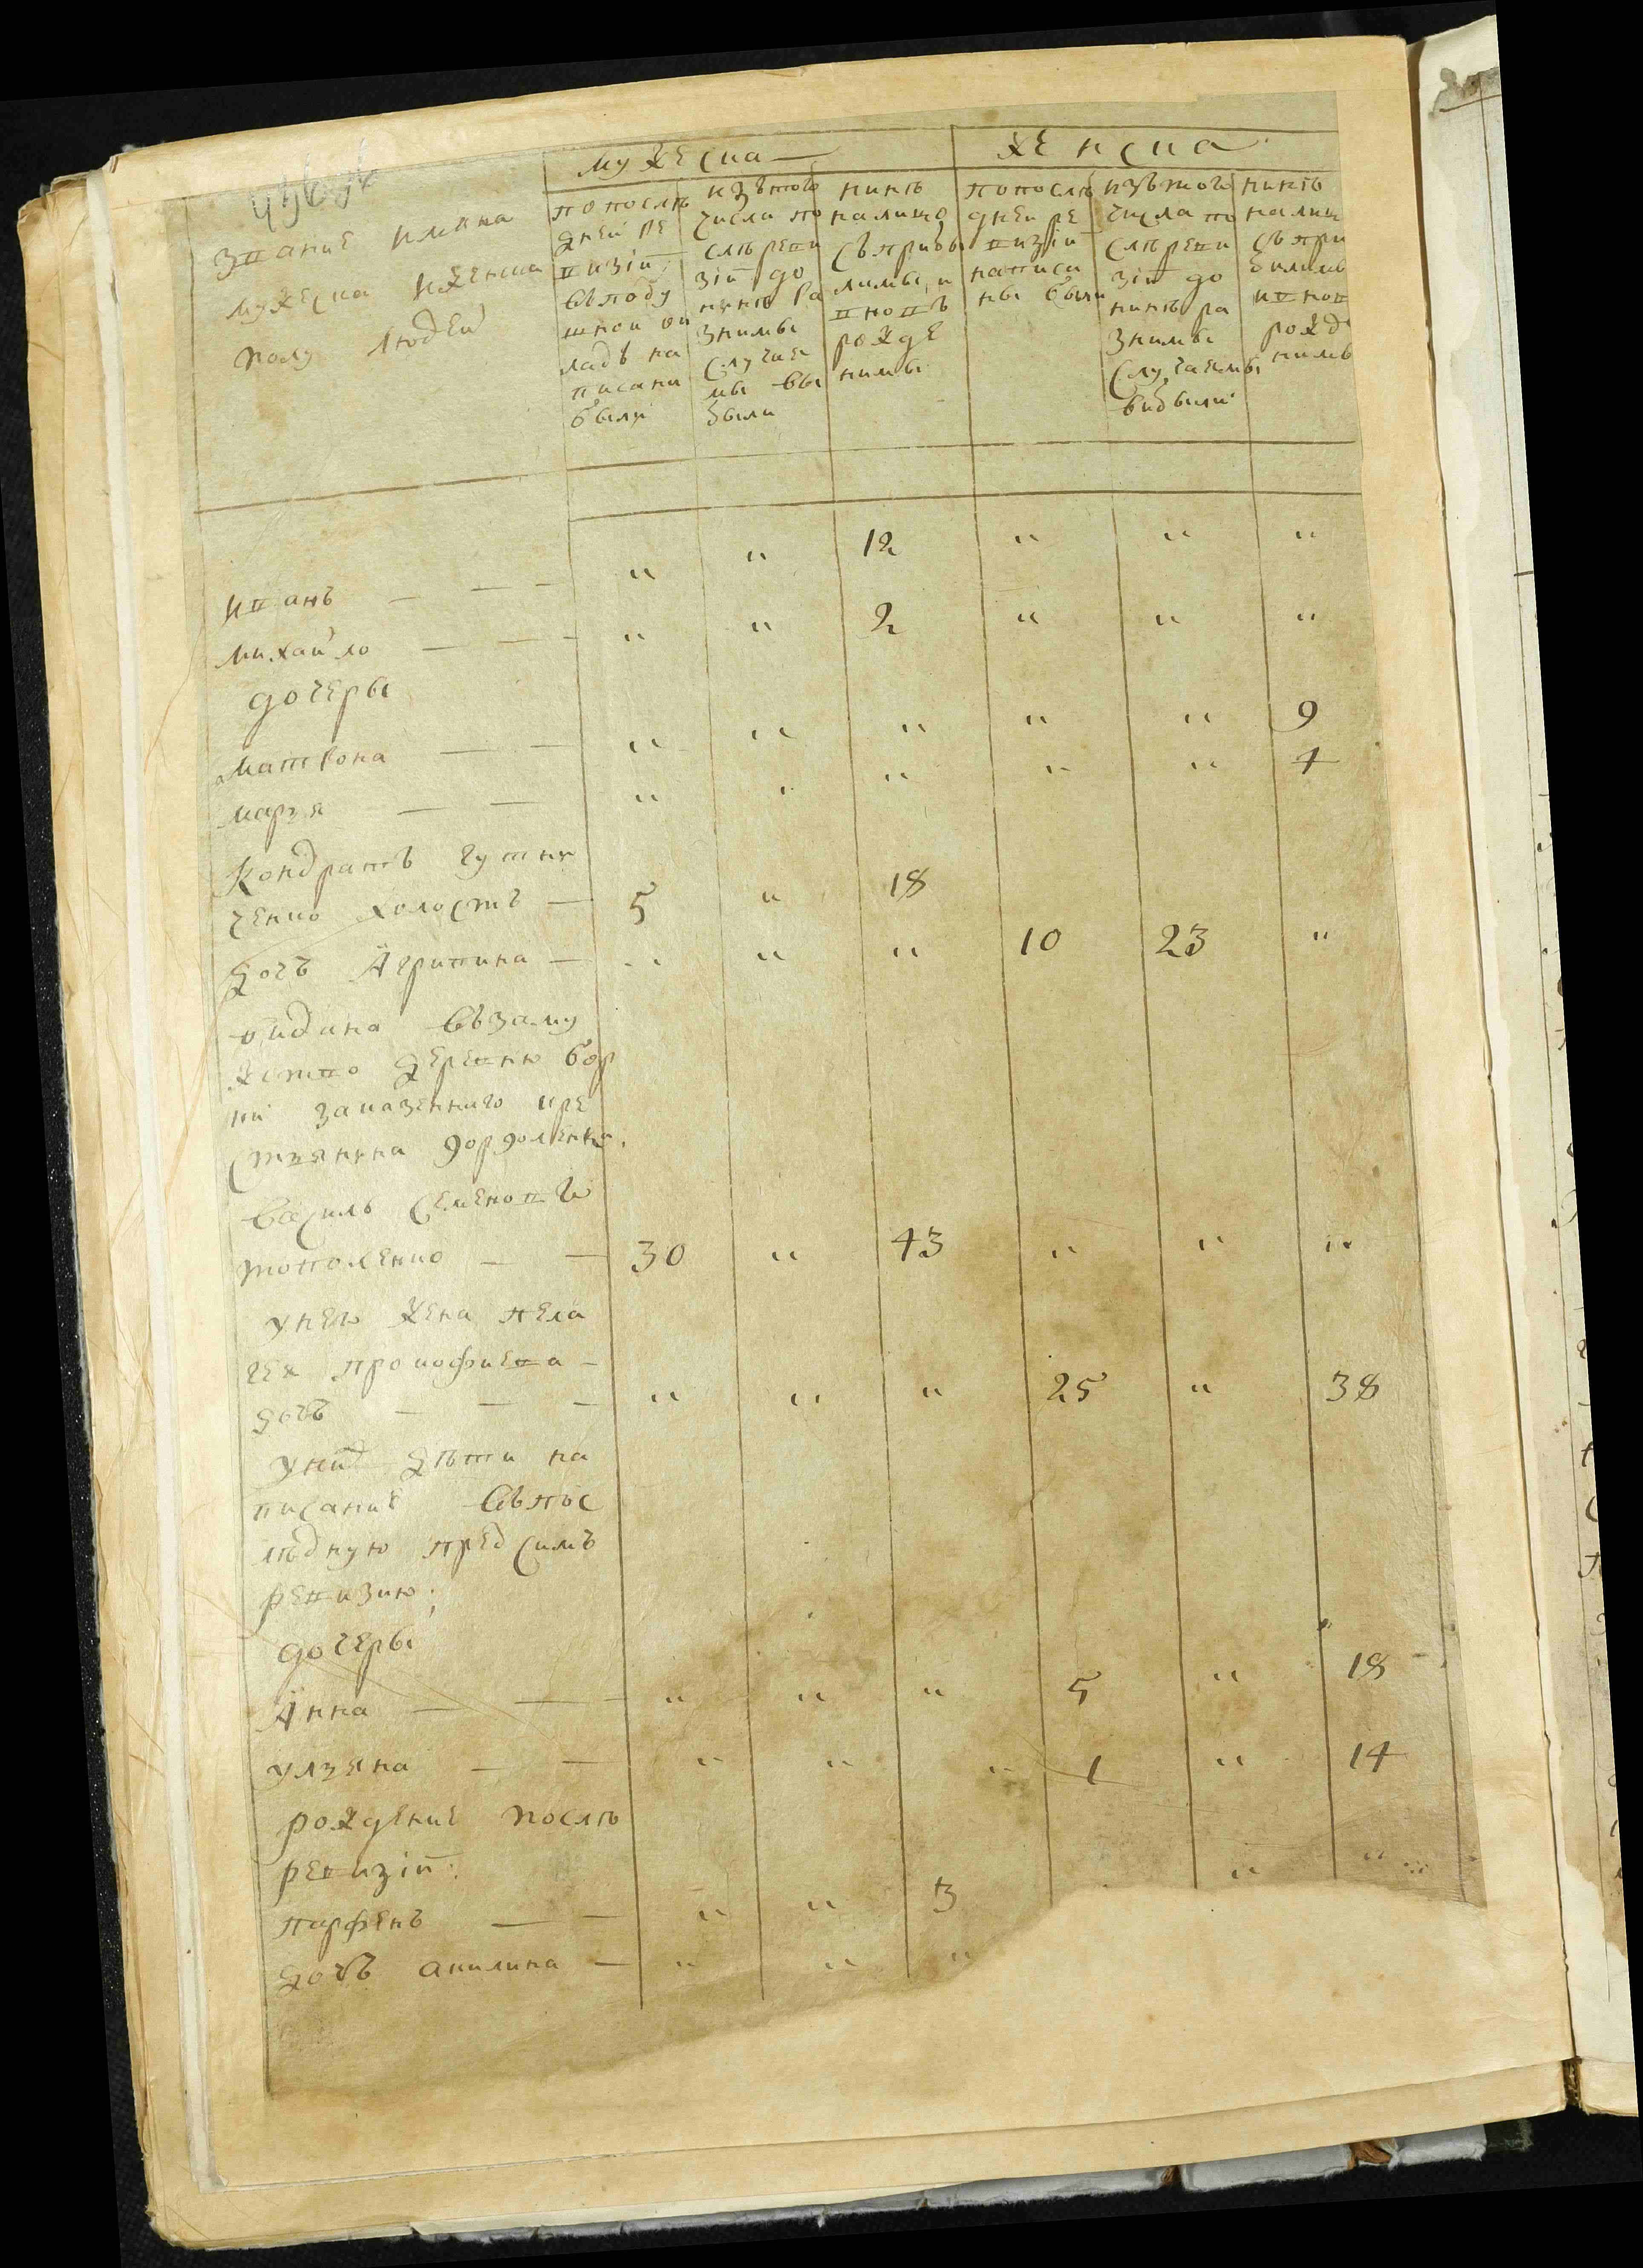 мужеска — женска
звание имяна
мужеска иженска
полу людей
попослѣ
дней ре
визіи
въподу
шной ок
ладъ на
писани
были
изътого
числа по
слѣ реви
зіи до
нинѣ ра
зними
случая
ми вы
были
нинѣ
налицо
съприбы
лими, и
вновъ
рожде
ними
попослѣ
дней ре
визіи
написа
ны были
изътого
числа по
слѣ реви
зіи до
нинѣ ра
зними
случаями
вибыли
нинѣ
налиц
съпри
билими
ивнов
рожд
ними
иванъ — — — " " 12 " " "
михайло — — — " " 2 " " "
дочеры
матрона — — " " " " " 9
марзя — — " " " " " 4
Кондратъ гутни
ченко холостъ — 5 " 18
дочъ Агрипина — " " " 10 23 "
видана възаму
жство деревню бор
ки заказенного кре
стзянина
василь Семеновъ
тополенко — — 30 " 43 " " "
унего жена пела
гея прокофиева —
дочъ — — — " " " 25 " 38
унихъ дѣти на
писание въпос
лѣдную предсимъ
ревизию;
дочеры
Анна — — " " " 5 " 18
улзяна — — " " " 1 " 14
рождение послѣ
ревизіи:
парфенъ — — " " 3 " "
дочъ акилина — " " "